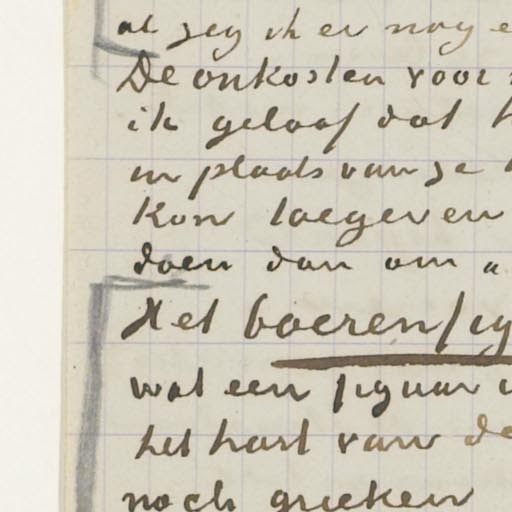 al zeg ik er nog e
De onkosten voor
ik geloof dat h
in plaats van ze
kon toegeven
doen dan om a
Het boerenfig
wat een figuur
het hart van de
noch grieken